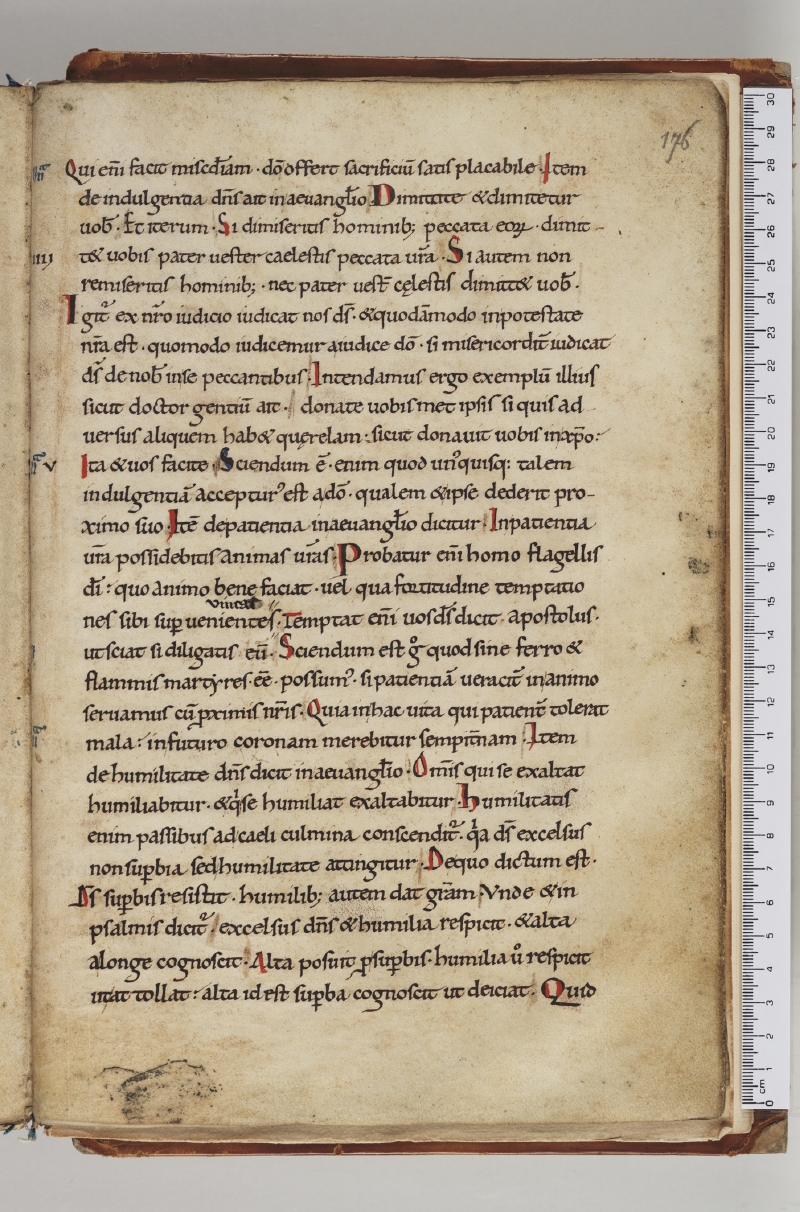 176
Qui eni͂ facit miscd̄iam · dō offert sacrificiū satis placabile · Item
de indulgentia dn̄s ait in aeuangl̄io Dimittite & dimitetur
uob̄ · Et iterum · Si dimiseritis hominib; peccata eoꝝ · dimit-
iiij t& uobis pater uester caelestis peccata ur̄a · Si autem non
remiseritis hominib; · nec pater uest̄ cęlestis dimitt& uob̄ ·
Igit᷑ ex nr̄o iudicio iudicat nos ds̄ · & quodāmodo in potestate
nr̄a est · quomodo iudicemur a iudice dō · si misericordit̄ iudicat
ds̄ de nob̄ in se peccantibus · Intendamus ergo exemplū illius
sicut doctor gentiū ait · donate uobismet ipsis si quis ad
uersus aliquem hab& querelam · sicut donauit uobis in xp̄o :
v Ita & uos facite · Sciendum ē · enim quod unꝰquisq: talem
indulgentiā accepturꝰ est a dō · qualem & ipse dederit pro-
ximo suo · Itē de patientia in aeuangl̄io dicitur · In patientia
ur̄a possidebitis animas ur̄as · Probatur eni͂ homo flagellis
dī : quo animo bene faciat · uel qua fortitudine temptatio
nes sibi suꝑuenientes · Temptat eni͂ uos ds̄ dicit apostolus ·
ut sciat si diligatis eū · Sciendum est g̊ quod sine ferro &
flammis martyres · eē · possumꝰ · si patientiā ueracit̄ in animo
seruamus cū ꝓximis nr̄is · Quia in hac uita qui patient̄ tolerat
mala : in futuro coronam merebitur sempit̄nam · Item
de humilitate dn̄s dicit in aeuangl̄io · Omīs qui se exaltat
humiliabitur · & q̊ se humiliat exaltabitur · Humilitatis
enim passibus ad caeli culmina conscendit᷑ · qͥa ds̄ excelsus
non suꝑbia sed humilitate attingitur · De quo dictum est ·
Ds̄ suꝑbis resistit · humilib; autem dat gr̄am · Vnde & in
psalmis dicit᷑ · excelsus dn̄s & humilia respicit · & alta
a longe cognoscit · Alta posuit ꝓ suꝑbis · humilia u̓ respicit
ut attollat : alta id est suꝑba cognoscit ut deiciat · Quid